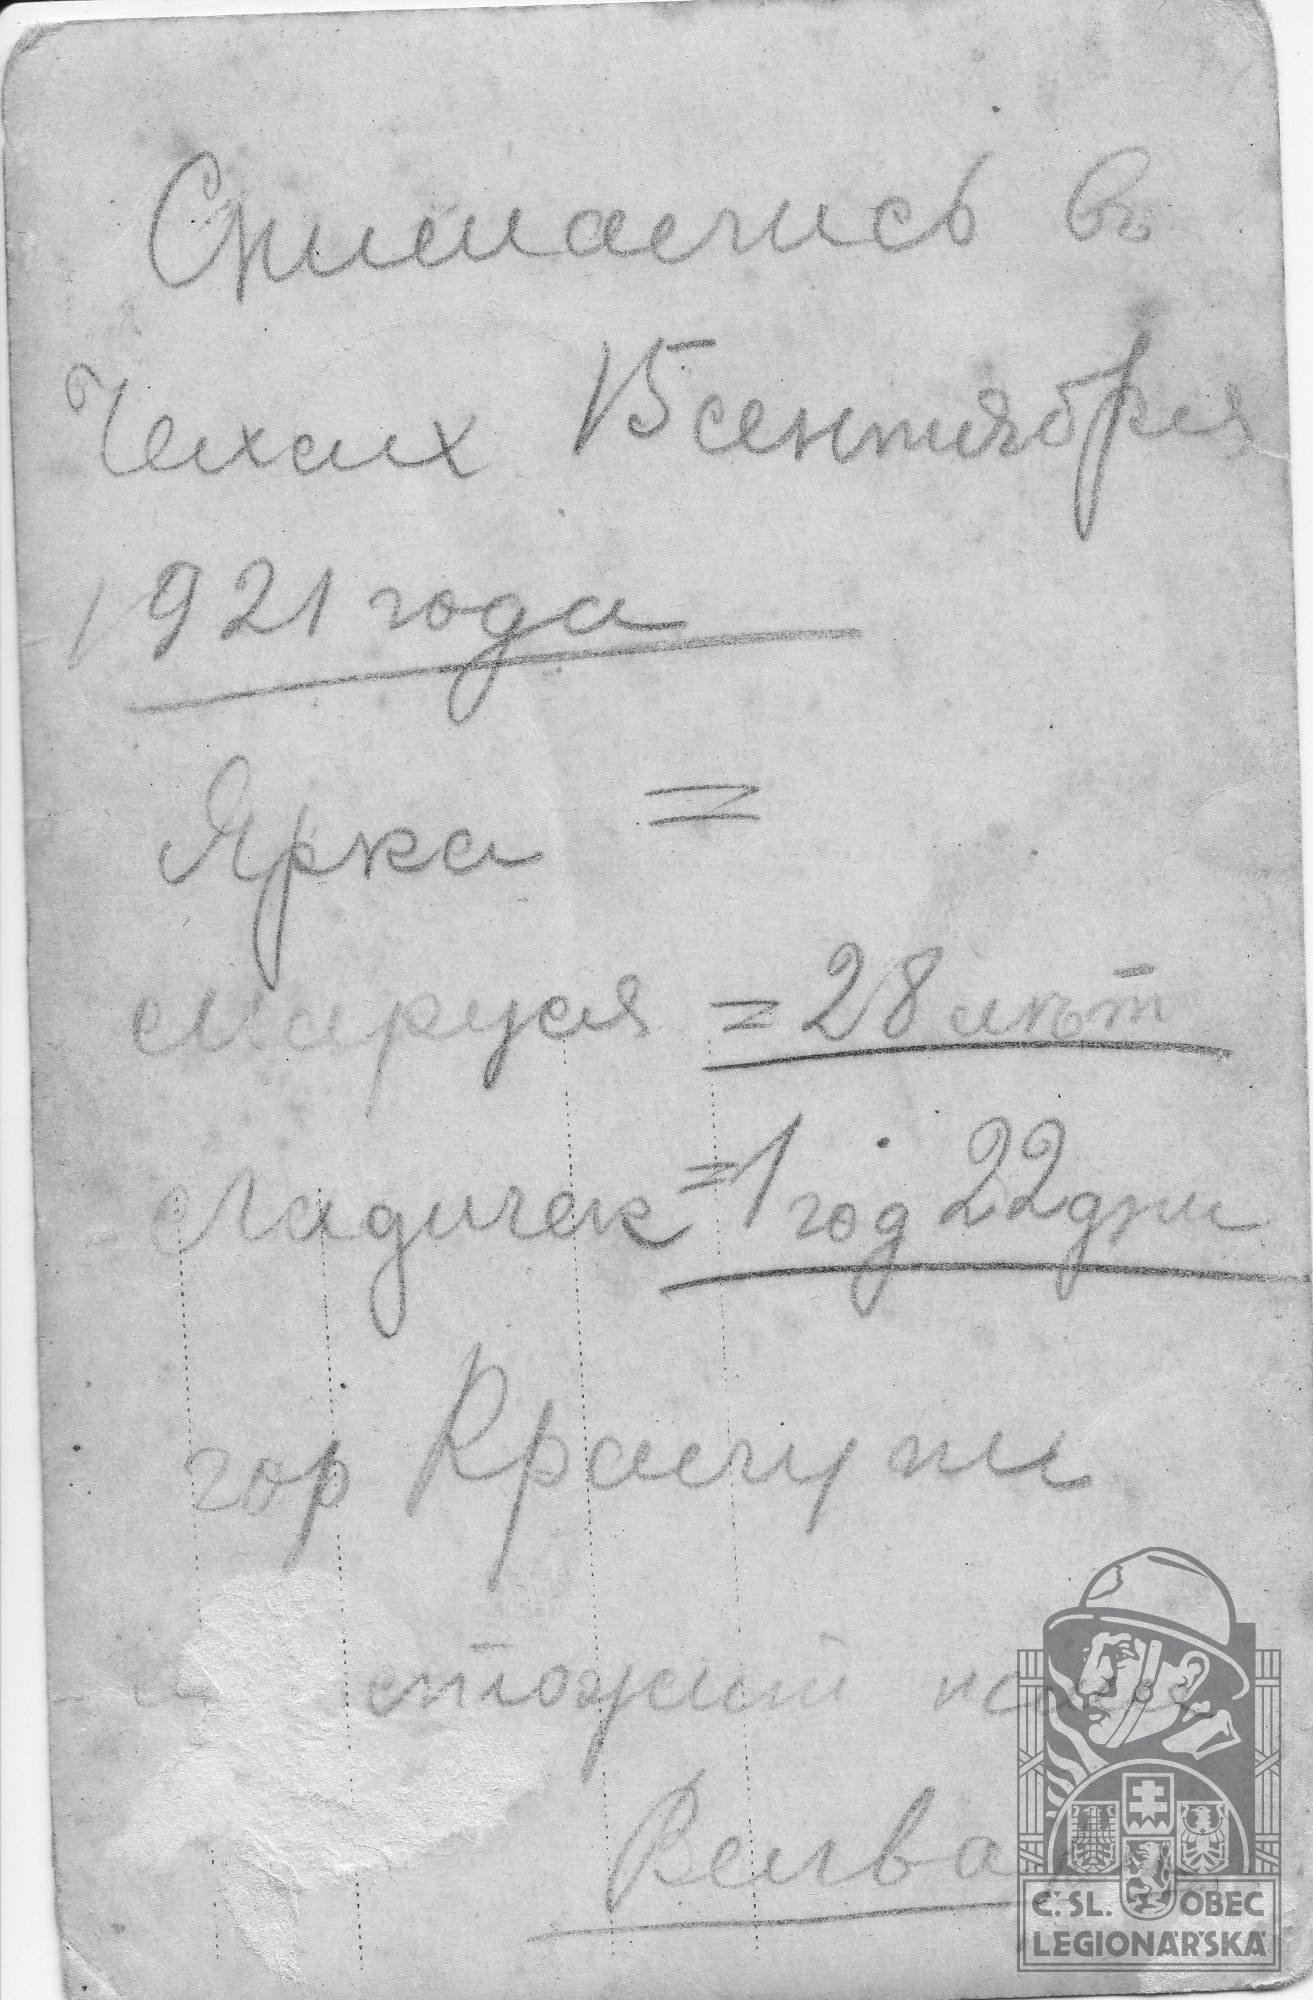 Снимались въ
Чехаих 15 сентября
1921 года
Ярка =
Маруся = 28 лѣт
Ладичек = 1 год 22 дни
гор Кралупи
Велва
Č.SL. OBEC
LEGIONÁŘSKÁ